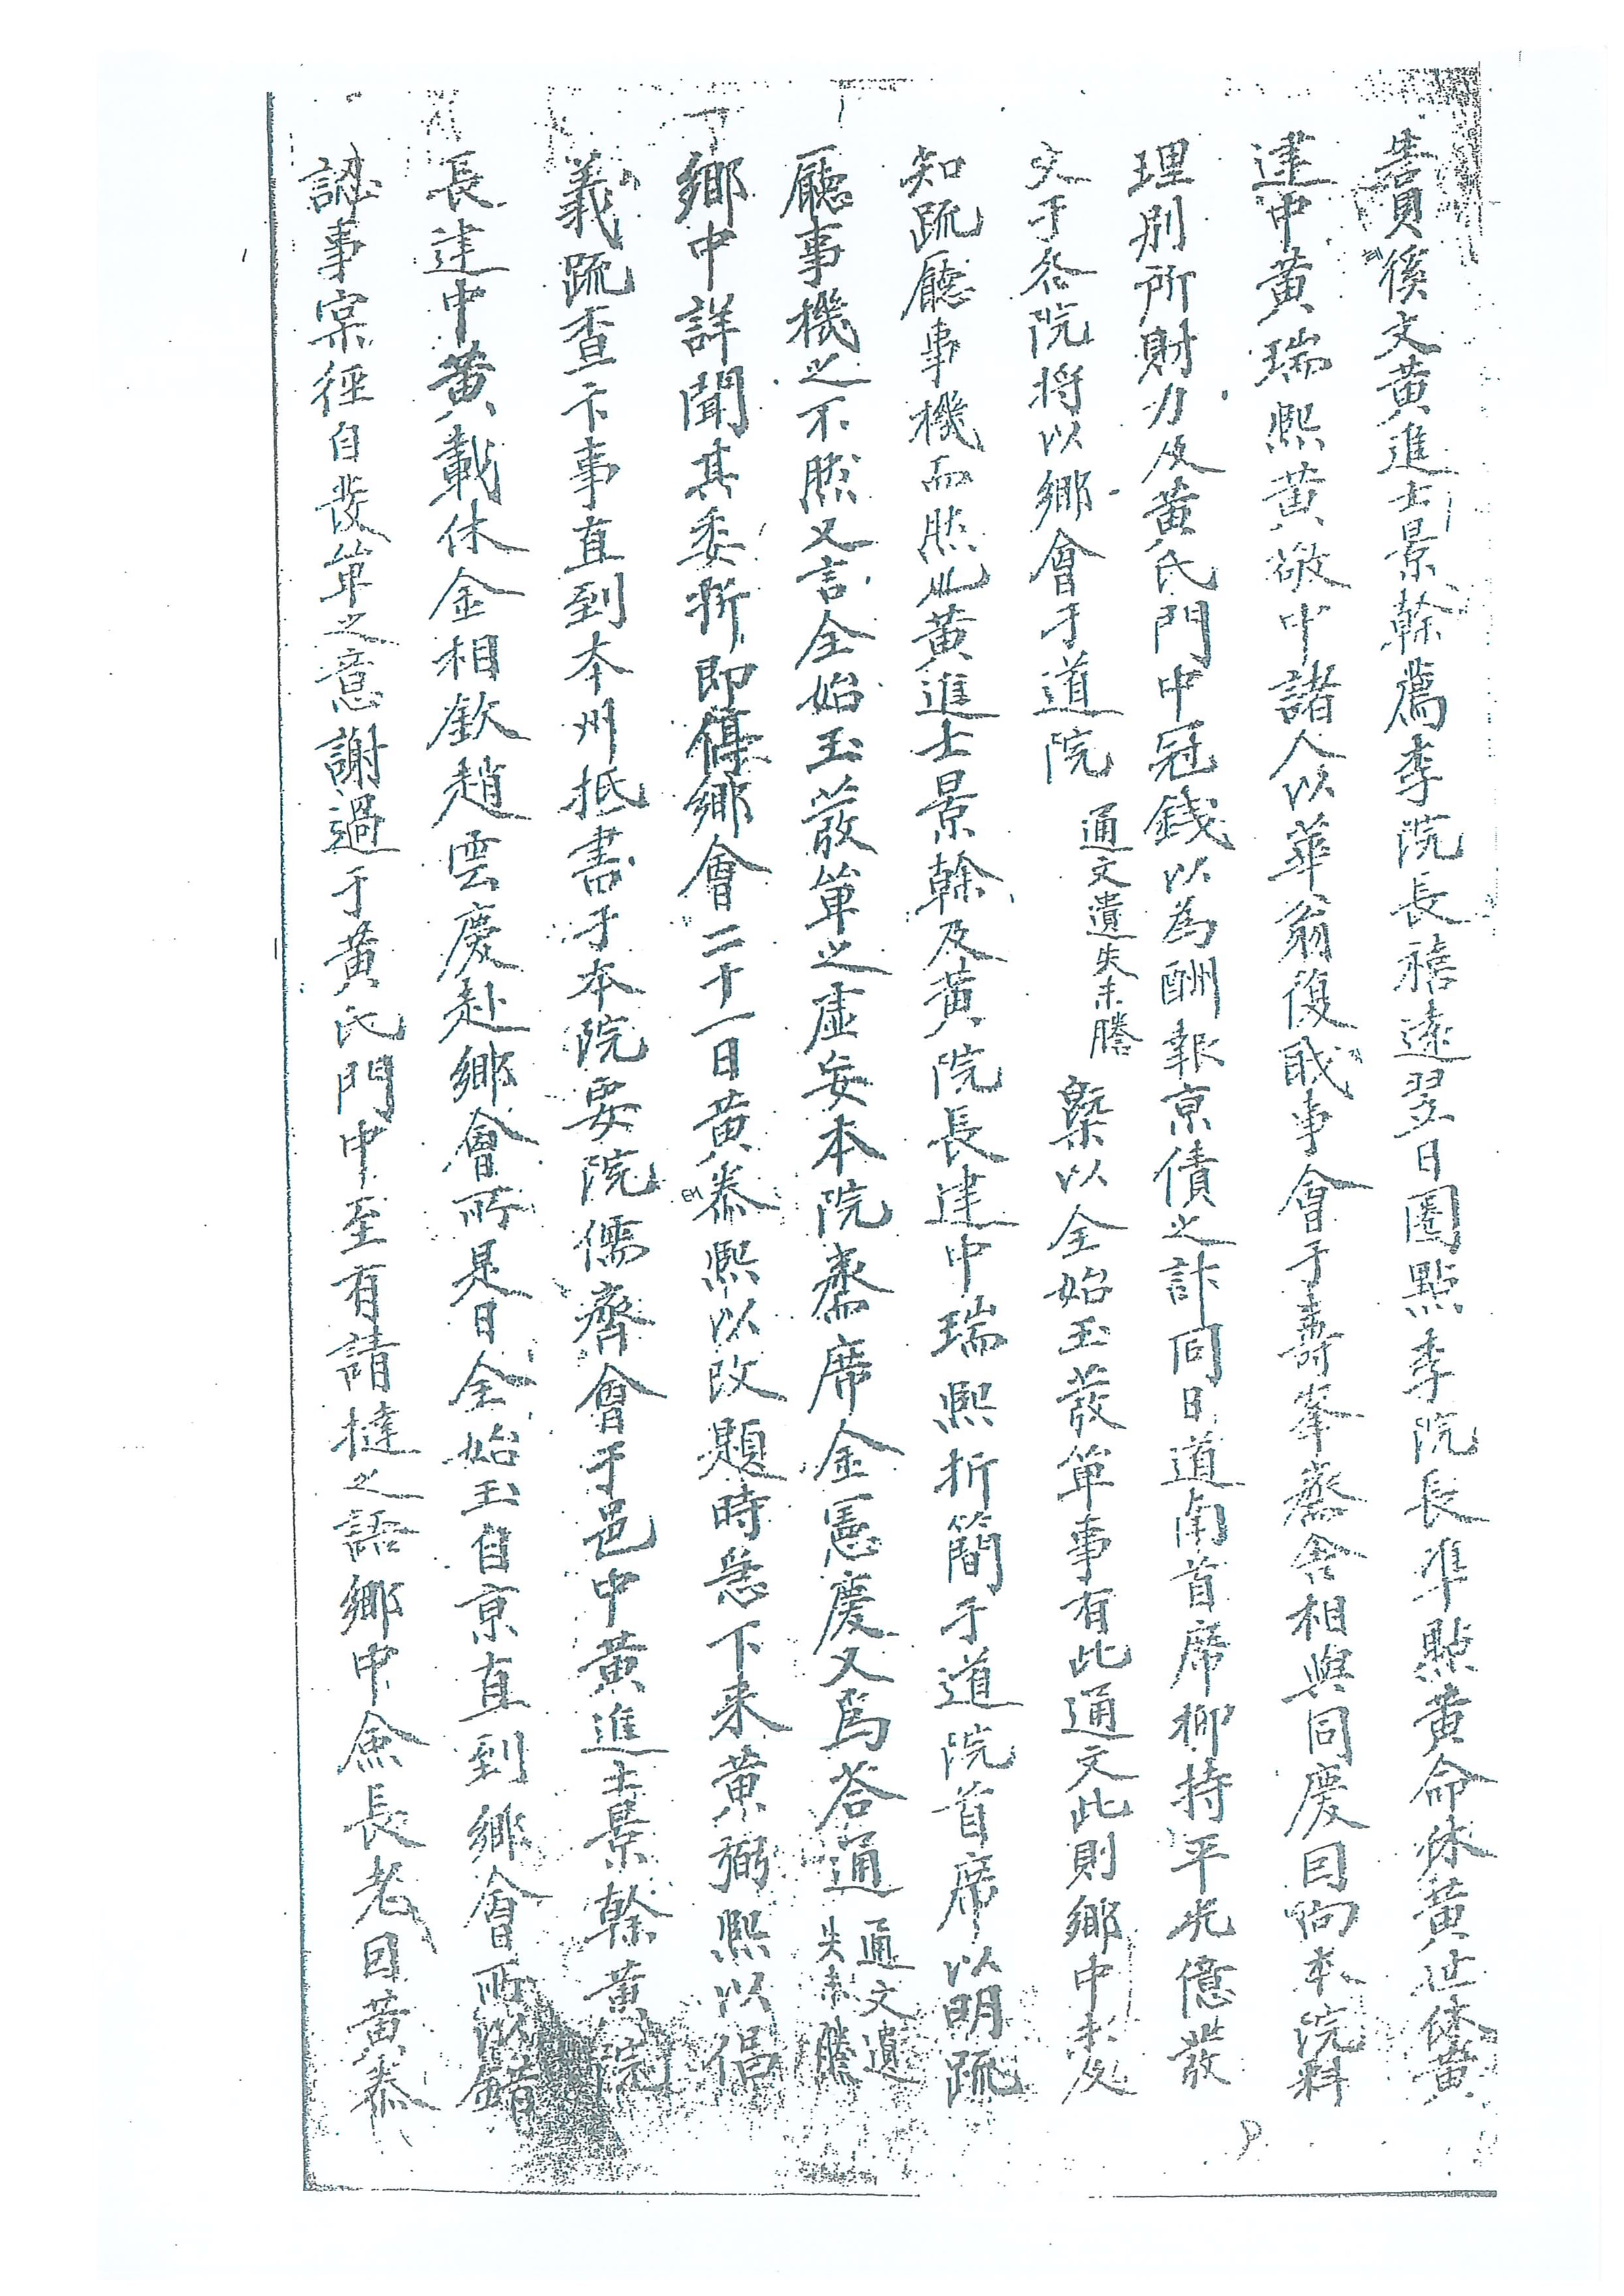 責後文黃進士景榦薦李院長禧遠翌日圈點李院長準點黃命休黃芷休黃
建中黃瑞熙黃敬中諸人以華翁復戢事會于壽峯齋舍相與同慶因向本院料
理別所財力及黃氏門中冠錢以為酬報京債之計同日道南首席柳持平光億發
文于各院將以鄉會于道院
通文遺失未謄
槩以全始玉發單事有此通文此則鄉中未及
知疏廳事機而然也黃進士景榦及黃院長建中瑞熙折簡于道院首席以明疏
廳事機之不然又言全始玉發單之虛妄本院齋席金憲慶又爲答通
通文遺
失未謄
鄉中詳聞其委折即停鄉會二十一日黃泰熙以改題時急下来黃弼熙以倡
義疏查卞事直到本州抵書于本院要院儒齊會于邑中黃進士景榦黃院
長建中黃載休金相欽趙雲慶赴鄉會所是日全始玉自京直到鄉會所以錯
認事案徑自發單之意謝過于黃氏門中至有請撻之語鄉中僉長老因黃泰